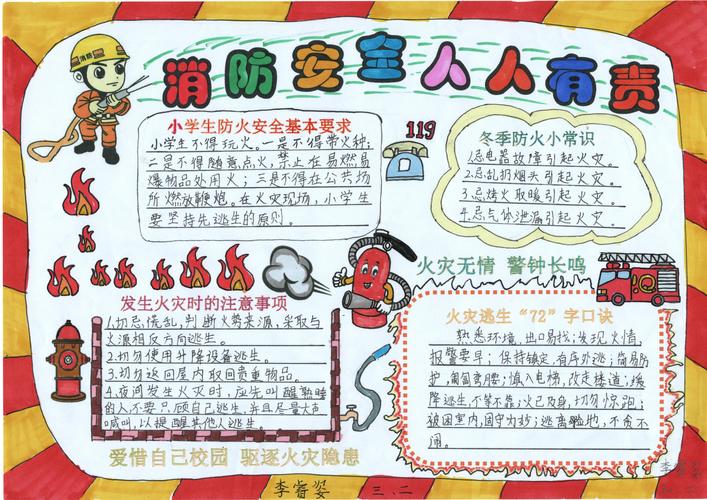 消防安全人人有责
消防
小学生防火安全基本要求
小学生不得玩火。一是不得带火种;
二是不得随意点火,禁止在易燃易
爆物品处用火;三是不得在公共场
所燃放鞭炮。在火灾现场,小学生
要坚持先逃生的原则。
119
冬季防火小常识
1.忌电器故障引起火灾。
2.忌乱扔烟头引起火灾。
3.忌烤火取暖引起火灾。
4.忌气体泄漏引起火灾。
火灾无情 警钟长鸣
发生火灾时的注意事项
1.切忌慌乱,判断火势来源,采取与
火源相反方向逃生。
2.切勿使用升降设备逃生。
3.切勿返回屋内取回贵重物品。
4.夜间发生火灾时,应先叫醒熟睡
的人不要只顾自己逃生,并且尽量大声
喊叫,以提醒其他人逃生。
火灾逃生“72”字口诀
熟悉环境,出口易找;发现火情,
报警要早;保持镇定,有序外逃;简易防
护,匍匐弯腰;慎入电梯,改走楼道;缓
降逃生,不等不靠;火已及身,切勿惊跑;
被困室内,固守为妙;远离险地,不贪不
闹。
爱惜自己校园 驱逐火灾隐患
李睿姿 三、二